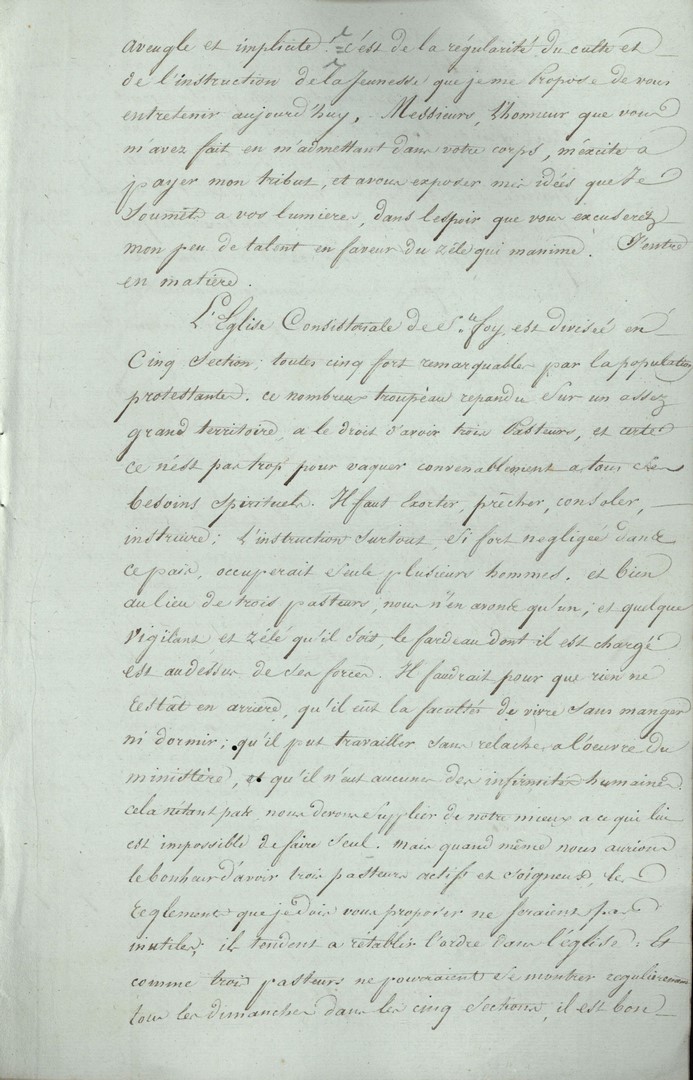 aveugle et implicite. c'est de la régularité du culte et
de l'instruction de la Jeunesse que je me Propose de vous
entretenir aujourd'huy, Messieurs, l'honneur que vous
m'avez fait en m'admettant dans votre corps, m'éxcite a
payer mon tribut, et avous exposer mes idées que Je
Soumets a vos lumieres, dans lespoir que vous excuserez
mon peu de talent en faveur du zéle qui manime. J'entre
en matiere.
L'Eglise Consistoriale de Ste foy est divisée en
Cinq Section; toutes cinq fort remarquables par la population
protestante. ce nombreux troupéau repandu Sur un assez
grand territoire, a le droit d'avoir trois Pasteurs, et certe
ce n'est pas trop pour vaquer convenablement a tous ces
besoins Spirituels. Il faut Exorter, prêcher, consoler,
instruire; L'instruction Surtout, Si fort negligée dans
ce païs, occuperait Seule plusieurs hommes. et bien
au lieu de trois pasteurs, nous n'en avons qu'un, et quelque
Vigilant et zélé qu'il Soit, le fardeau dont il est chargé
est audessus de Ses forces. Il faudrait pour que rien ne
restât en arriere, qu'il eût la facultés de vivre Sans manger
ni dormir; qu'il put travailler Sans relache a l'oeuvre du
ministère, et qu'il n'eut aucunes des infirmités humaines.
cela nétant pas, nous devons Supplier de notre mieux a ce qui lui
est impossible de faire Seul. mais quand même nous aurions
le bonheur d'avoir trois pasteurs actifs et Soigneux, les
reglements que je dois vous proposer ne Seraient pas
inutiles; ils tendent a retablir l'ordre dans l'église. Et
comme trois pasteurs ne pourraient Se montrer regulierement
tous les dimanches dans les cinq Sections, il est bon